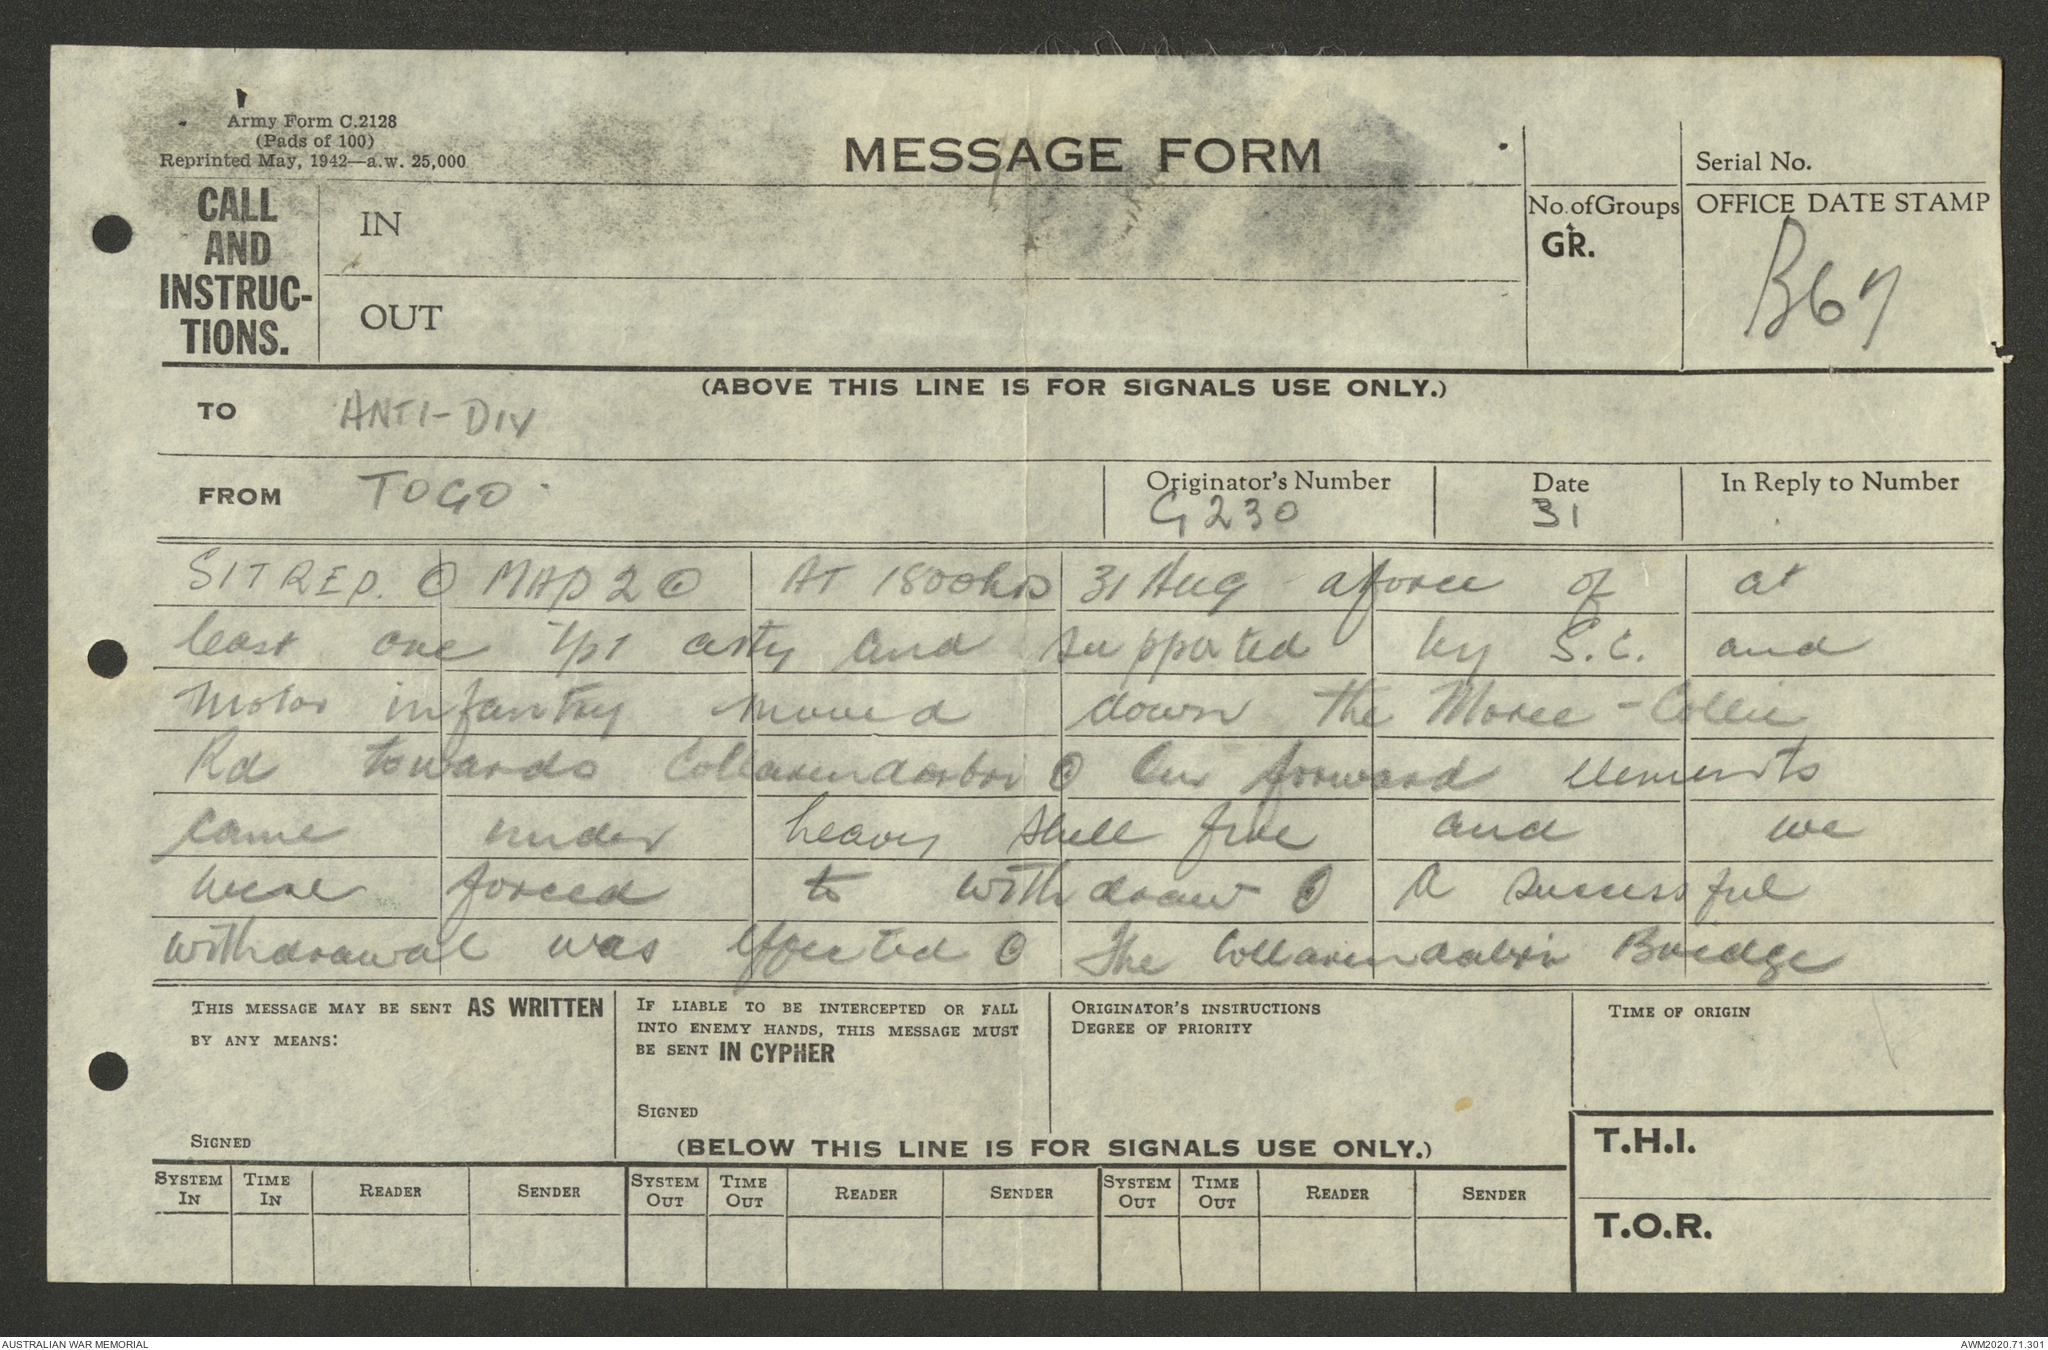 Army Form C.2128
(Pads of 100)
Reprinted May, 1942—a.w. 25,000
MESSAGE FORM
Serial No.
CALL
AND
INSTRUC-
TIONS.
IN
OUT
No. of Groups
GR.
OFFICE DATE STAMP
B67
(ABOVE THIS LINE IS FOR SIGNALS USE ONLY.)
TO ANTI-DIV
FROM TOGO
Originator's Number
G230
Date
31
In Reply to Number
SITREP. © MAP 2 © AT 1800hrs 31 Aug a force of at
least one arty and supported by S.C. and
Motor infantry moved down the Moree - Collie
Rd towards Collarendarbri © Our forward elements
came under heavy shell fire and we
were forced to withdraw © A successful
withdrawal was effected © The Collarendabri Bridge
THIS MESSAGE MAY BE SENT AS WRITTEN
BY ANY MEANS:
SIGNED
IF LIABLE TO BE INTERCEPTED OR FALL
INTO ENEMY HANDS, THIS MESSAGE MUST
BE SENT IN CYPHER
SIGNED
ORIGINATOR'S INSTRUCTIONS
DEGREE OF PRIORITY
TIME OF ORIGIN
(BELOW THIS LINE IS FOR SIGNALS USE ONLY.)
T.H.I.
T.O.R.
SYSTEM IN TIME IN READER SENDER SYSTEM OUT TIME OUT READER SENDER SYSTEM OUT TIME OUT READER SENDER
AUSTRALIAN WAR MEMORIAL
AWM2020.71.301